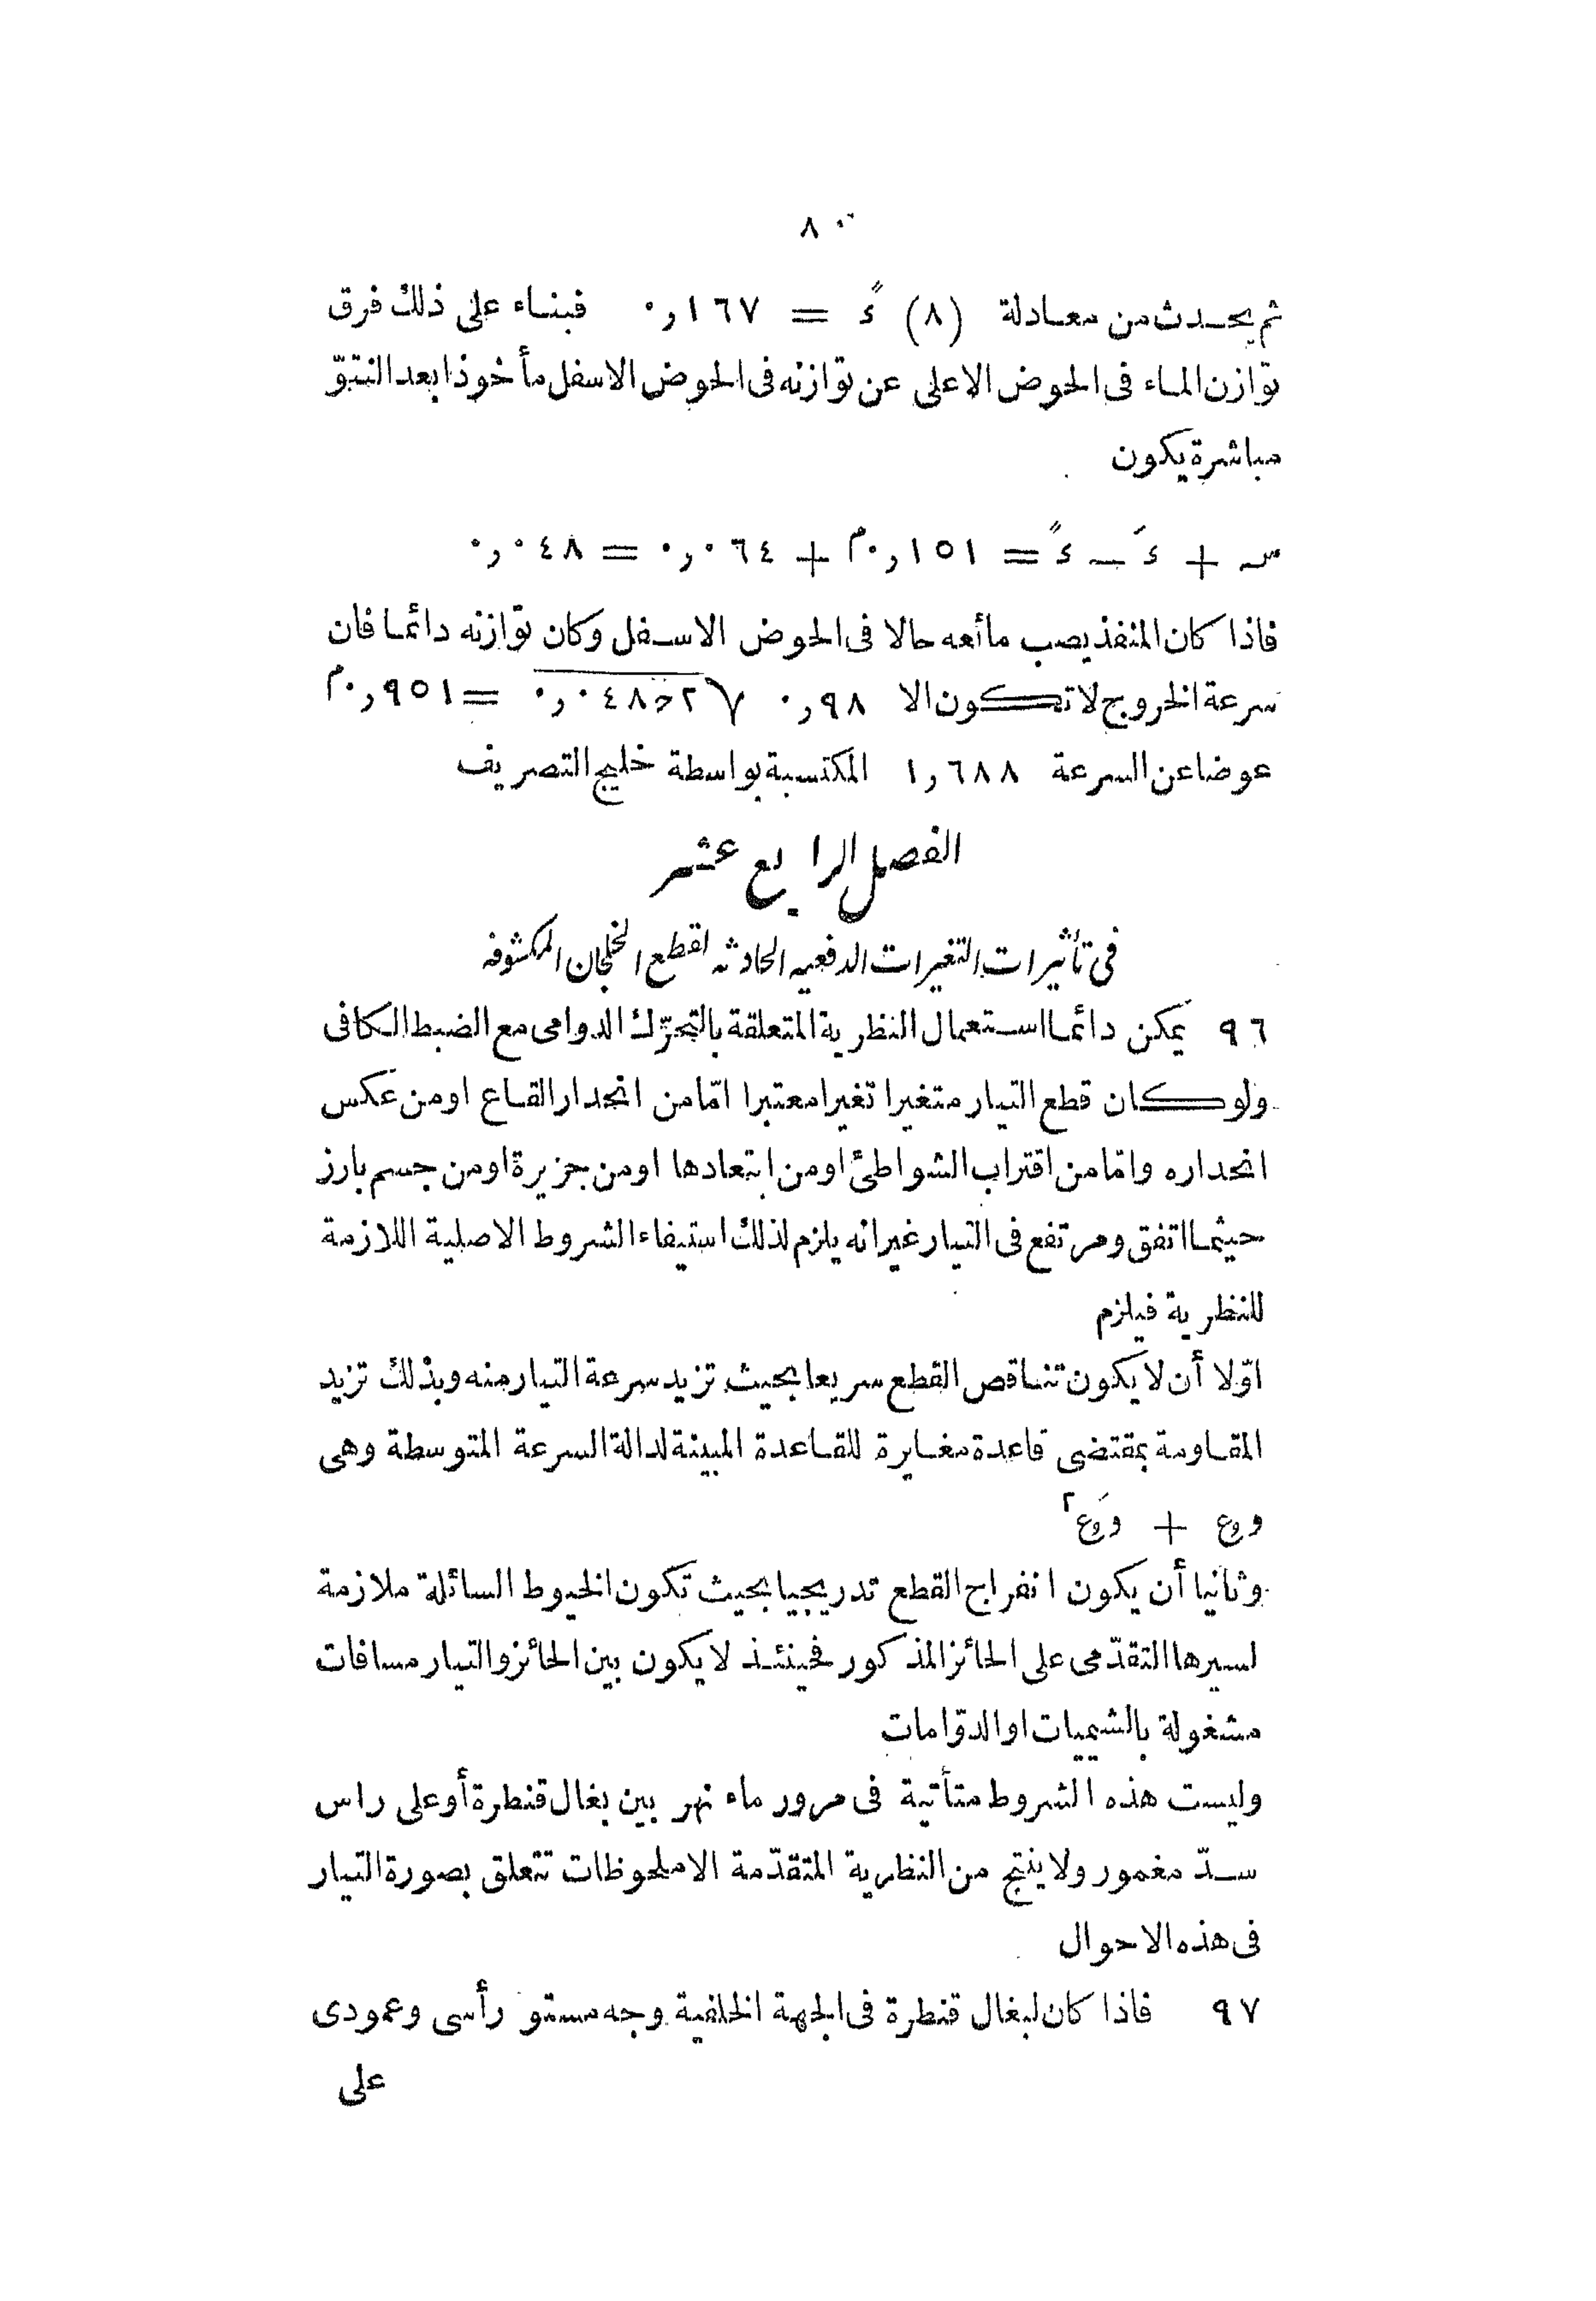 ٨٠
ثم يحدث من معادلة (٨) ءً = ٠,١٦٧ فبناء على ذلك فرق
توازن الماء فى الحوض الاعلى عن توازنه فى الحوض الاسفل مأخوذا بعد النتوّ
مباشرة يكون
س + ءَ − ءً = ٠,١٥١م + ٠,٠٦٤ = ٠,٠٤٨
فاذا كان المنفذ يصب مائعه حالا فى الحوض الاسفل وكان توازنه دائما فان
سرعة الخروج لا تكون الا ٠,٩٨ √٢ح٠,٠٤٨ = ٠,٩٥١م
عوضا عن السرعة ١,٦٨٨ المكتسبة بواسطة خليج التصريف
الفصل الرابع عشر
فى تأثيرات التغيرات الدفعيه الحادثه لقطع الخلجان المكشوفه
٩٦ يمكن دائما استعمال النظرية المتعلقة بالتحرّك الدوامى مع الضبط الكافى
ولو كان قطع التيار متغيرا تغيرا معتبرا امّا من انحدار القاع او من عكس
انحداره وامّا من اقتراب الشواطئ او من ابتعادها او من جزيرة او من جسم بارز
حيثما اتفق ومرتفع فى التيار غير انه يلزم لذلك استيفاء الشروط الاصلية اللازمة
للنظرية فيلزم
اوّلا أن لا يكون تناقص القطع سريعا بحيث تزيد سرعة التيار منه وبذلك تزيد
المقاومة بمقتضى قاعدة مغايرة للقاعدة المبينة لدالة السرعة المتوسطة وهى
و وع + وَ وع٢
وثانيا أن يكون انفراج القطع تدريجيا بحيث تكون الخيوط السائلة ملازمة
لسيرها التقدّمى على الحائز المذكور فحينئذ لا يكون بين الحائز والتيار مسافات
مشغولة بالشيميات او الدوّامات
وليست هذه الشروط متأتية فى مرور ماء نهر بين بغال قنطرة أو على راس
سدّ مغمور ولا ينتج من النظرية المتقدّمة الا ملحوظات تتعلق بصورة التيار
فى هذه الاحوال
٩٧ فاذا كان لبغال قنطرة فى الجهة الخلفية وجه مستو رأسى وعمودى
على